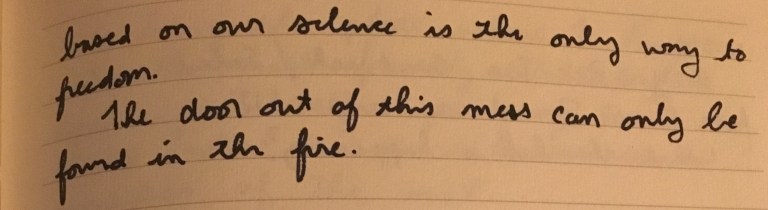 based on our silence is the only way to
freedom.
The door out of this mess can only be
found in the fire.